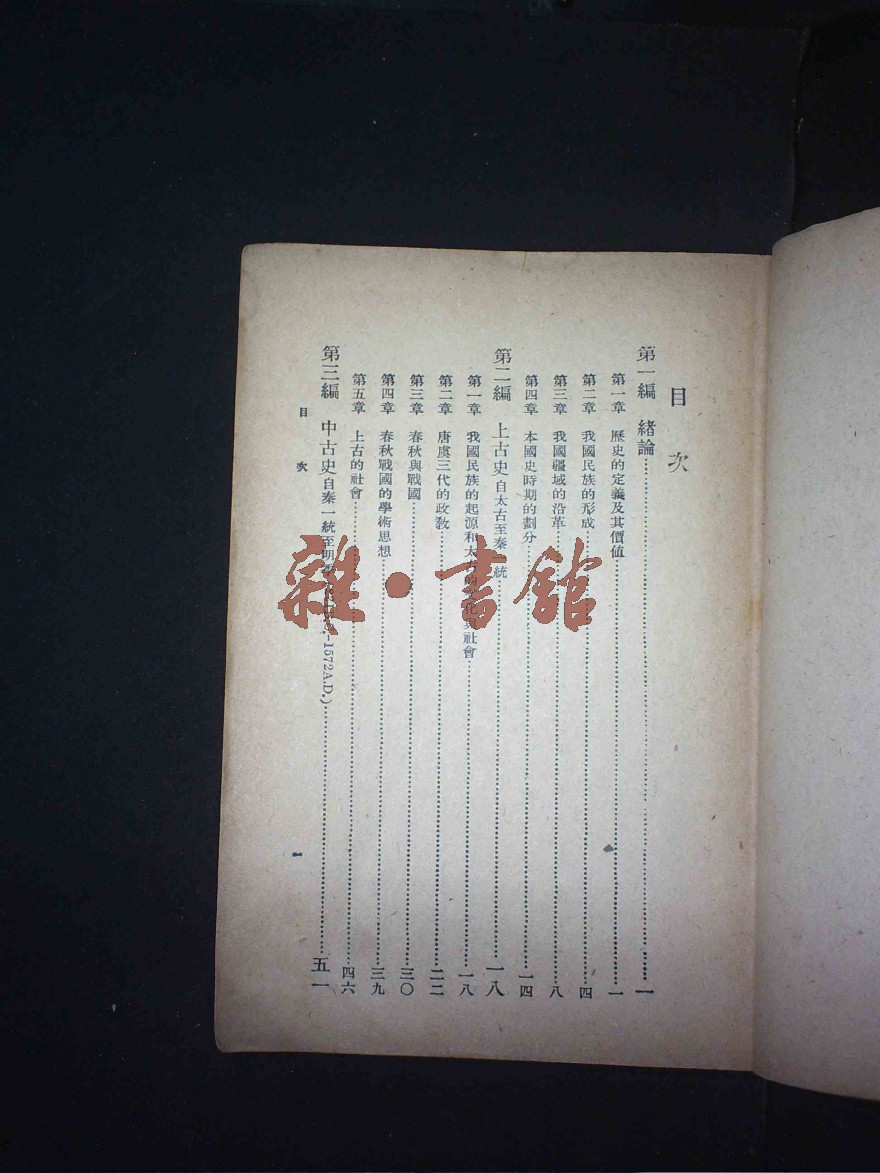 目次
第一編 緒論……一
第一章 歷史的定義及其價值……一
第二章 我國民族的形成……四
第三章 我國疆域的沿革……八
第四章 本國史時期的劃分……一四
第二編 上古史自太古至秦一統……一八
第一章 我國民族的起源和太古的文化與社會……一八
第二章 唐虞三代的政教……二二
第三章 春秋與戰國……三〇
第四章 春秋戰國的學術思想……三九
第五章 上古的社會……四六
第三編 中古史自秦一統至明 –1572A.D.)……五一
目次 一
雜·書館